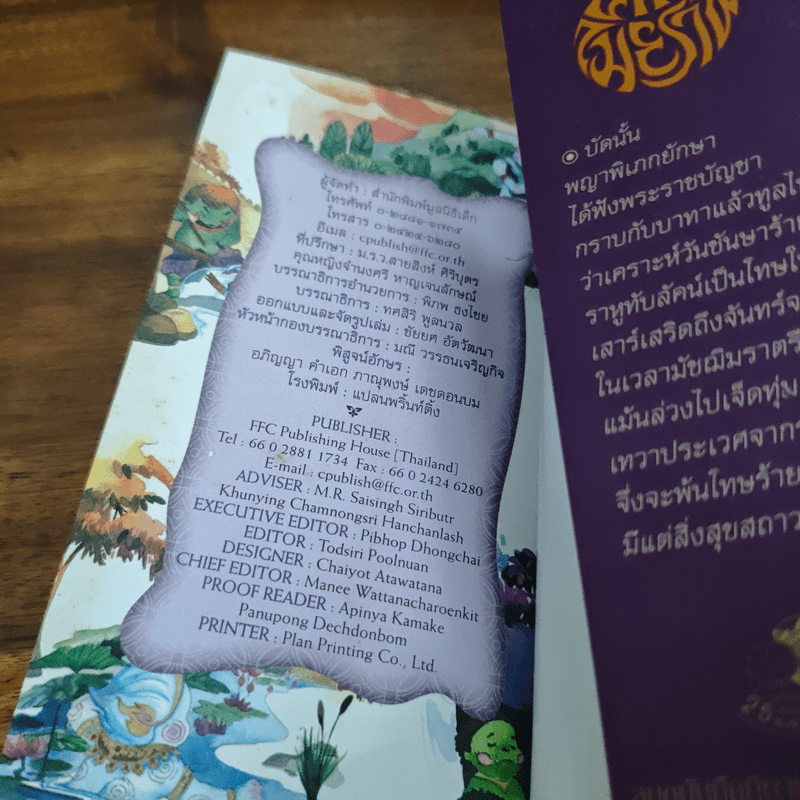 ผู้จัดทำ : สำนักพิมพ์มูลนิธิเด็ก
โทรศัพท์ ๐-๒๘๘๑-๑๗๓๔
โทรสาร ๐-๒๔๒๔-๖๒๘๐
อีเมล : cpublish@ffc.or.th
ที่ปรึกษา : ม.ร.ว.สายสิงห์ ศิริบุตร
คุณหญิงจำนงศรี หาญเจนลักษณ์
บรรณาธิการอำนวยการ : พิภพ ธงไชย
บรรณาธิการ : ทศสิริ พูลนวล
ออกแบบและจัดรูปเล่ม : ชัยยศ อัตวัฒนา
หัวหน้ากองบรรณาธิการ : มณี วรรธนเจริญกิจ
พิสูจน์อักษร :
อภิญญา คำเอก ภาณุพงษ์ เดชดอนบม
โรงพิมพ์ : แปลนพริ้นท์ติ้ง
PUBLISHER :
FFC Publishing House [Thailand]
Tel : 66 0 2881 1734 Fax : 66 0 2424 6280
E-mail : cpublish@ffc.or.th
ADVISER : M.R. Saisingh Siributr
Khunying Chamnongsri Hanchanlash
EXECUTIVE EDITOR : Pibhop Dhongchai
EDITOR : Todsiri Poolnuan
DESIGNER : Chaiyot Atawatana
CHIEF EDITOR : Manee Wattanacharoenkit
PROOF READER : Apinya Kamake
Panupong Dechdonbom
PRINTER : Plan Printing Co., Ltd.
มัยราพ
๏ บัดนั้น
พญาพิเภกยักษา
ได้ฟังพระราชบัญชา
กราบกับบาทาแล้วทูลไข
ว่าเคราะห์วันชันษาร้าย
ราหูทับลัคน์เป็นโทษใ
เสาร์เสริดถึงจันทร์จ
ในเวลามัชฌิมราตรี
แม้นล่วงไปเจ็ดทุ่ม
เทวาประเวศจาก
จึ่งจะพ้นโทษร้าย
มีแต่สิ่งสุขสถาว